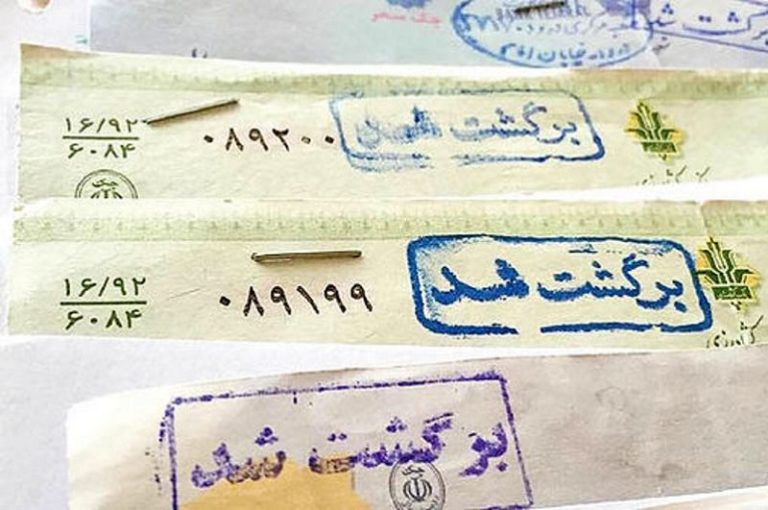 برگشت شد
۱۶/۹۲
۶۰۸۴
۰۸۹۲۰۰
برگشت شد
۱۶/۹۲
۶۰۸۴
۰۸۹۱۹۹
برگشت شد
کشاورزی
برگشت شد